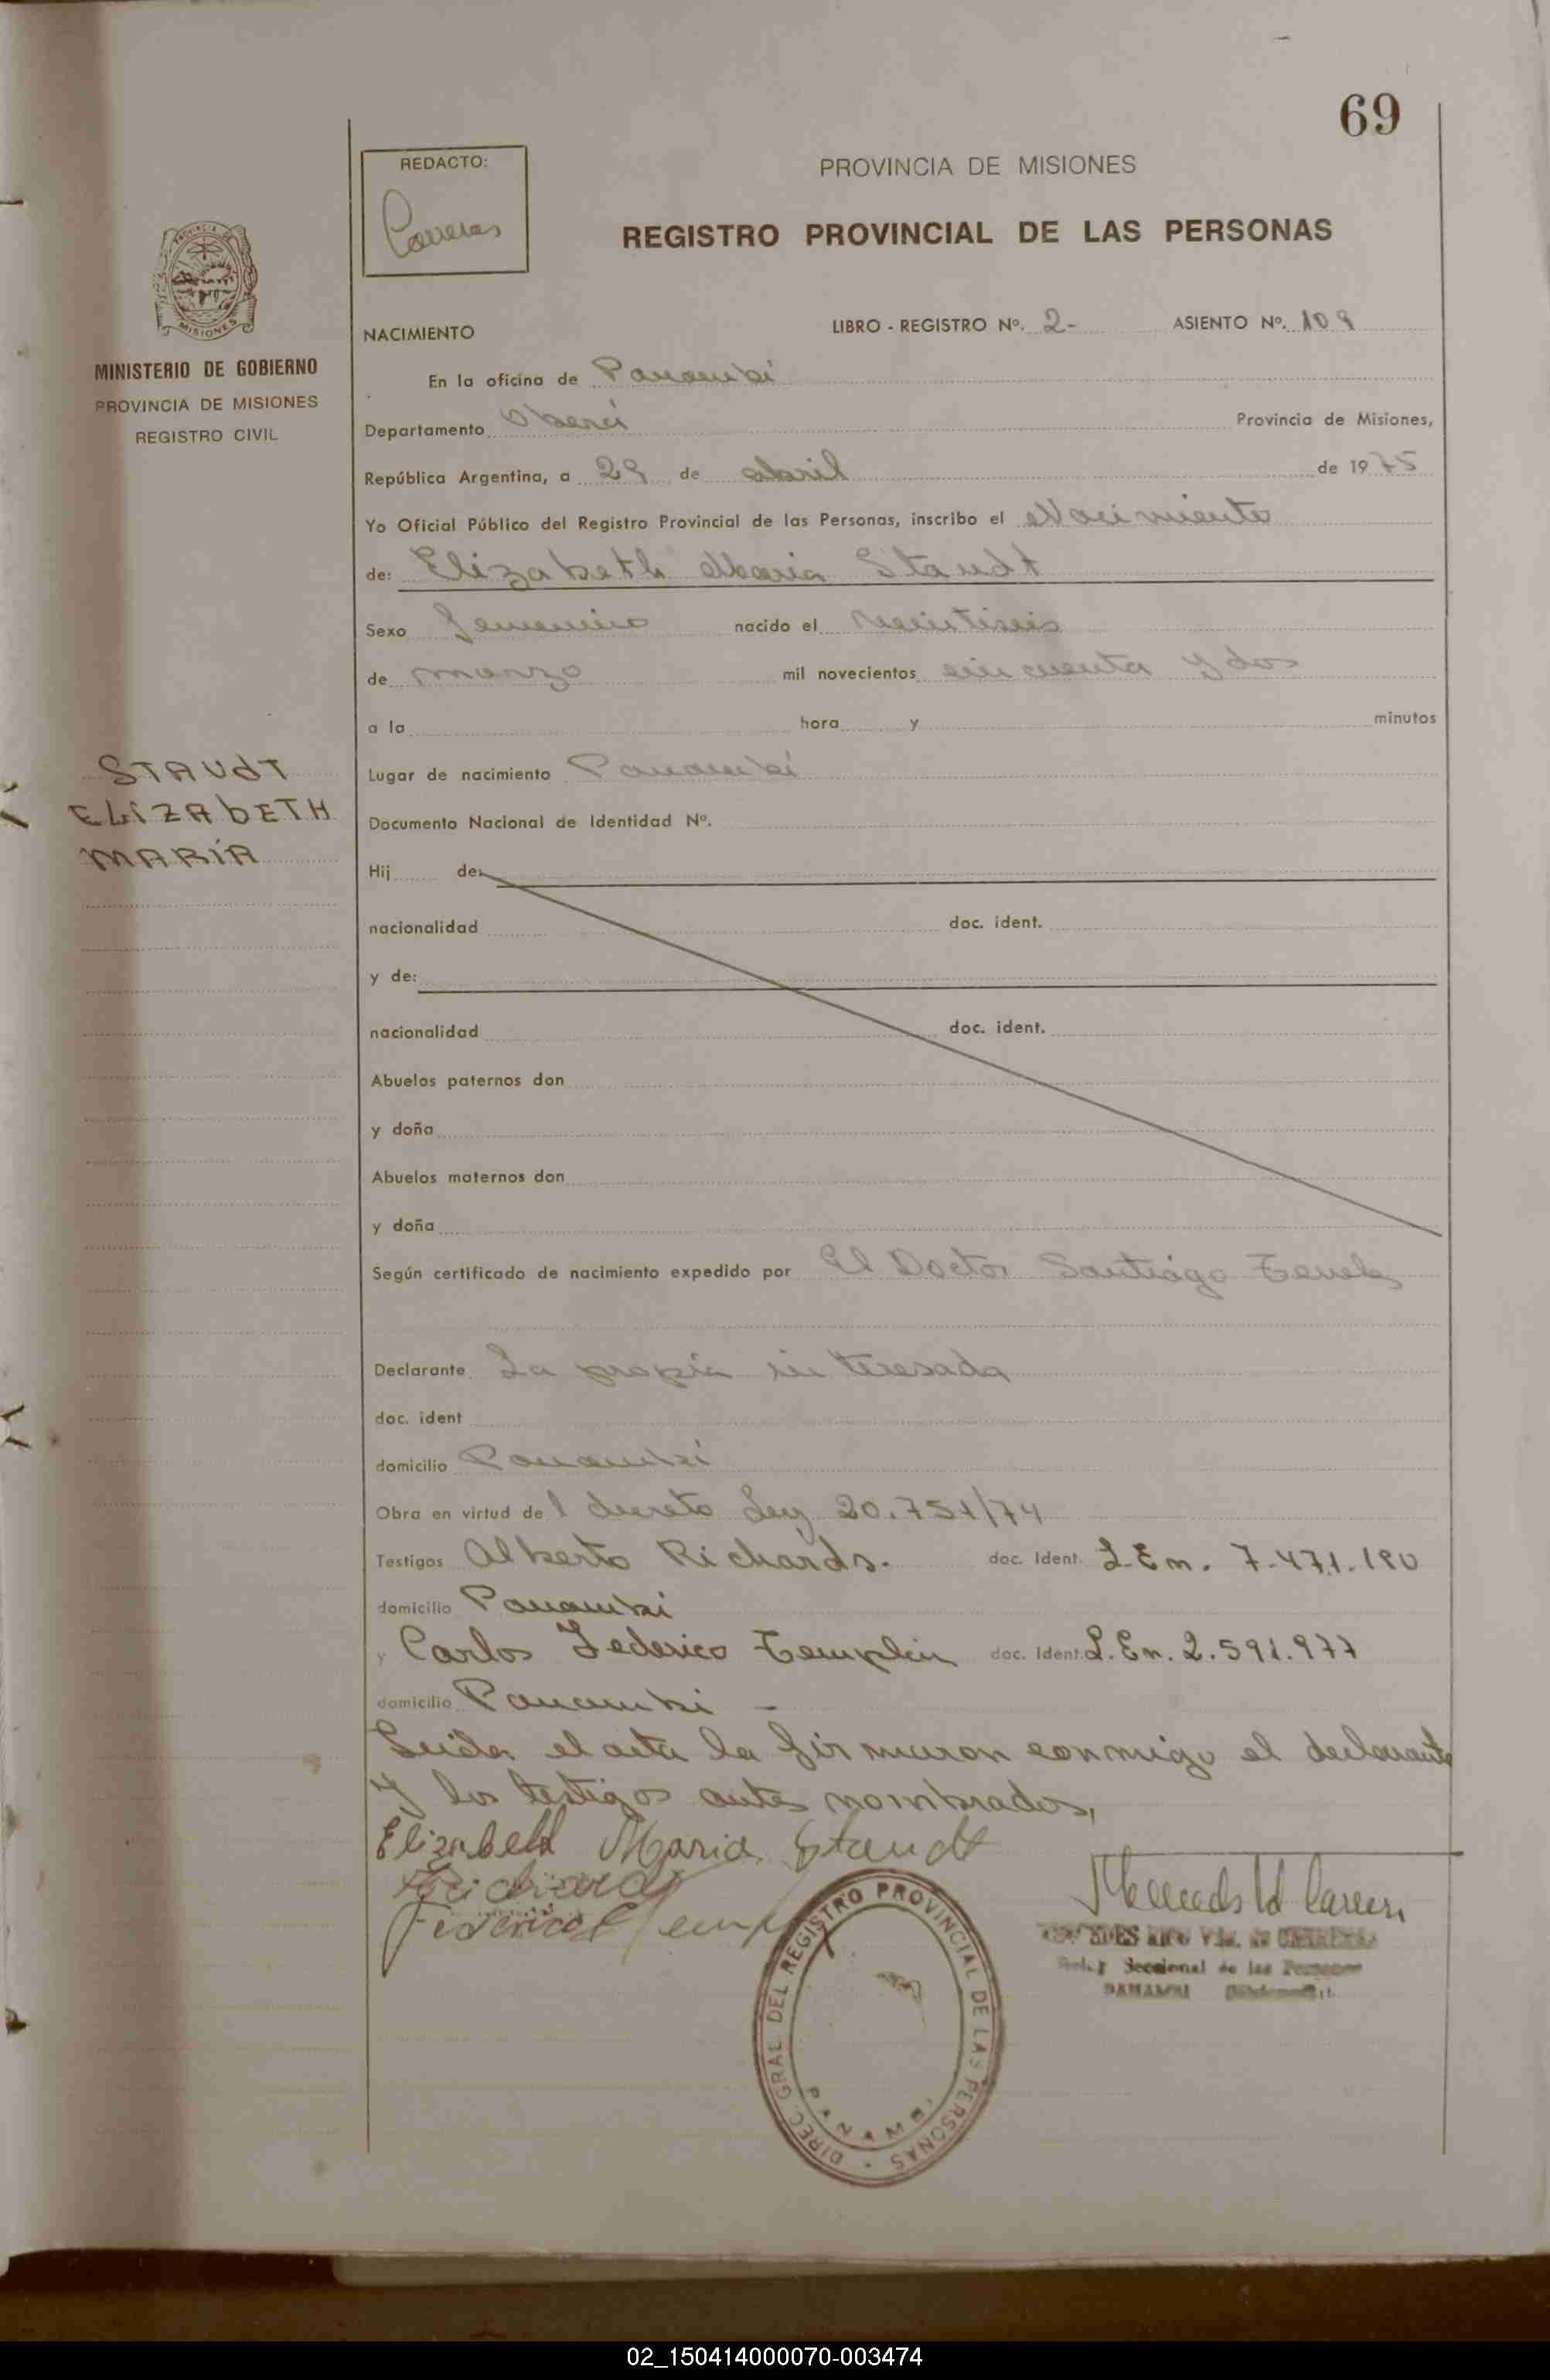 69
REDACTO:
Carreras
PROVINCIA DE MISIONES
REGISTRO PROVINCIAL DE LAS PERSONAS
PROVINCIA DE
MISIONES
MINISTERIO DE GOBIERNO
PROVINCIA DE MISIONES
REGISTRO CIVIL
NACIMIENTO LIBRO - REGISTRO Nº. 2- ASIENTO Nº. 109
En la oficina de Panambí
Departamento Oberá Provincia de Misiones,
República Argentina, a 29 de abril de 1975
Yo Oficial Público del Registro Provincial de las Personas, inscribo el Nacimiento
de: Elizabeth Maria Staudt
Sexo femenino nacido el veintiseis
de marzo mil novecientos cincuenta y dos
a la hora y minutos
STAUDT
ELIZABETH
MARÍA
Lugar de nacimiento Panambí
Documento Nacional de Identidad Nº.
Hij de:
nacionalidad doc. ident.
y de:
nacionalidad doc. ident.
Abuelos paternos don
y doña
Abuelos maternos don
y doña
Según certificado de nacimiento expedido por El Doctor Santiago
Declarante La propia interesada
doc. ident
domicilio Panambí
Obra en virtud de l decreto Ley 20.751/74
Testigos Alberto Richards. doc. Ident. L.En. 7.471.180
domicilio Panambi
y Carlos Federico Templin doc. Ident. L.En. 2.591.977
domicilio Panambi -
Leida el acta la firmaron conmigo el declarante
y los testigos antes nombrados,
Elizabeth Maria Staudt
Richards
Federico C Templin
DIREC. GRAL. DEL REGISTRO PROVINCIAL DE LAS PERSONAS
PANAMBI
Seccional de las Personas
PANAMBI
02_150414000070-003474